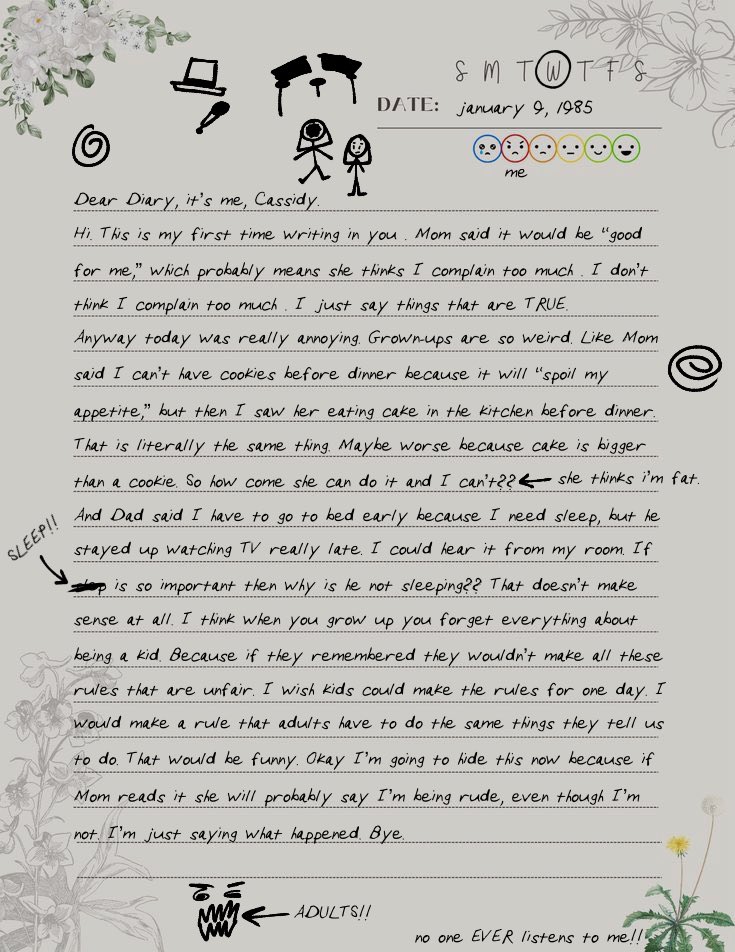 S M T W T F S
DATE: january 9, 1985
me
Dear Diary, it's me, Cassidy.
Hi. This is my first time writing in you . Mom said it would be "good
for me," which probably means she thinks I complain too much . I don't
think I complain too much . I just say things that are TRUE.
Anyway today was really annoying. Grown-ups are so weird. Like Mom
said I can't have cookies before dinner because it will "spoil my
appetite," but then I saw her eating cake in the kitchen before dinner.
That is literally the same thing. Maybe worse because cake is bigger
than a cookie. So how come she can do it and I can't?? she thinks i'm fat.
And Dad said I have to go to bed early because I need sleep, but he
SLEEP!!
stayed up watching TV really late. I could hear it from my room. If
is so important then why is he not sleeping?? That doesn't make
sense at all. I think when you grow up you forget everything about
being a kid. Because if they remembered they wouldn't make all these
rules that are unfair. I wish kids could make the rules for one day. I
would make a rule that adults have to do the same things they tell us
to do. That would be funny. Okay I'm going to hide this now because if
Mom reads it she will probably say I'm being rude, even though I'm
not. I'm just saying what happened. Bye.
ADULTS!!
no one EVER listens to me!!